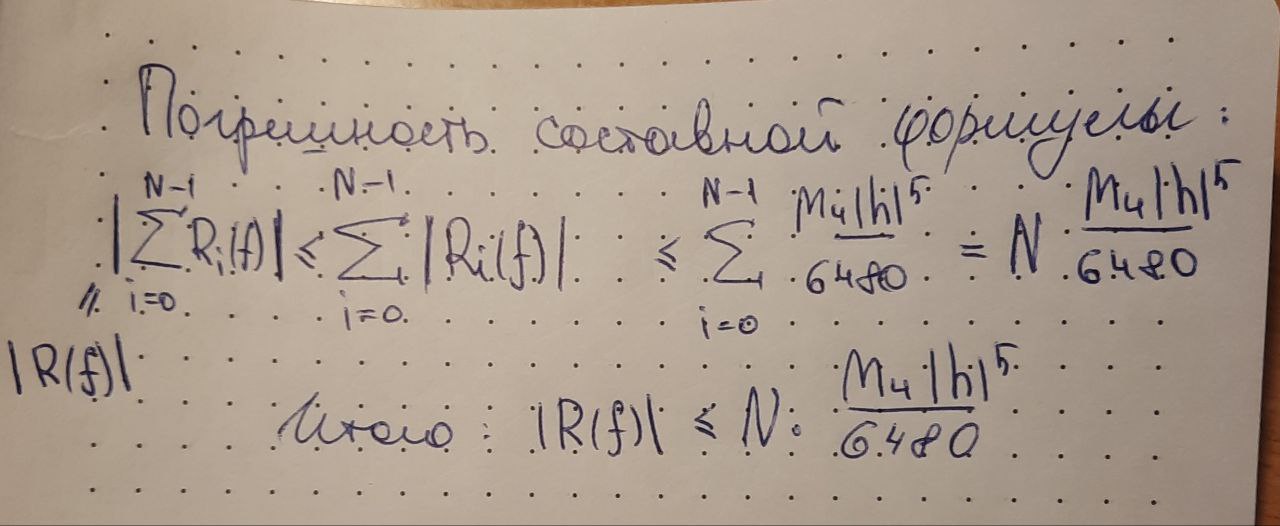 Погрешность составной формулы:
|∑_{i=0}^{N-1} R_i(f)| ≤ ∑_{i=0}^{N-1} |R_i(f)| ≤ ∑_{i=0}^{N-1} M_4|h|^5 / 6480 = N M_4|h|^5 / 6480
|R(f)|
Итого: |R(f)| ≤ N · M_4|h|^5 / 6480